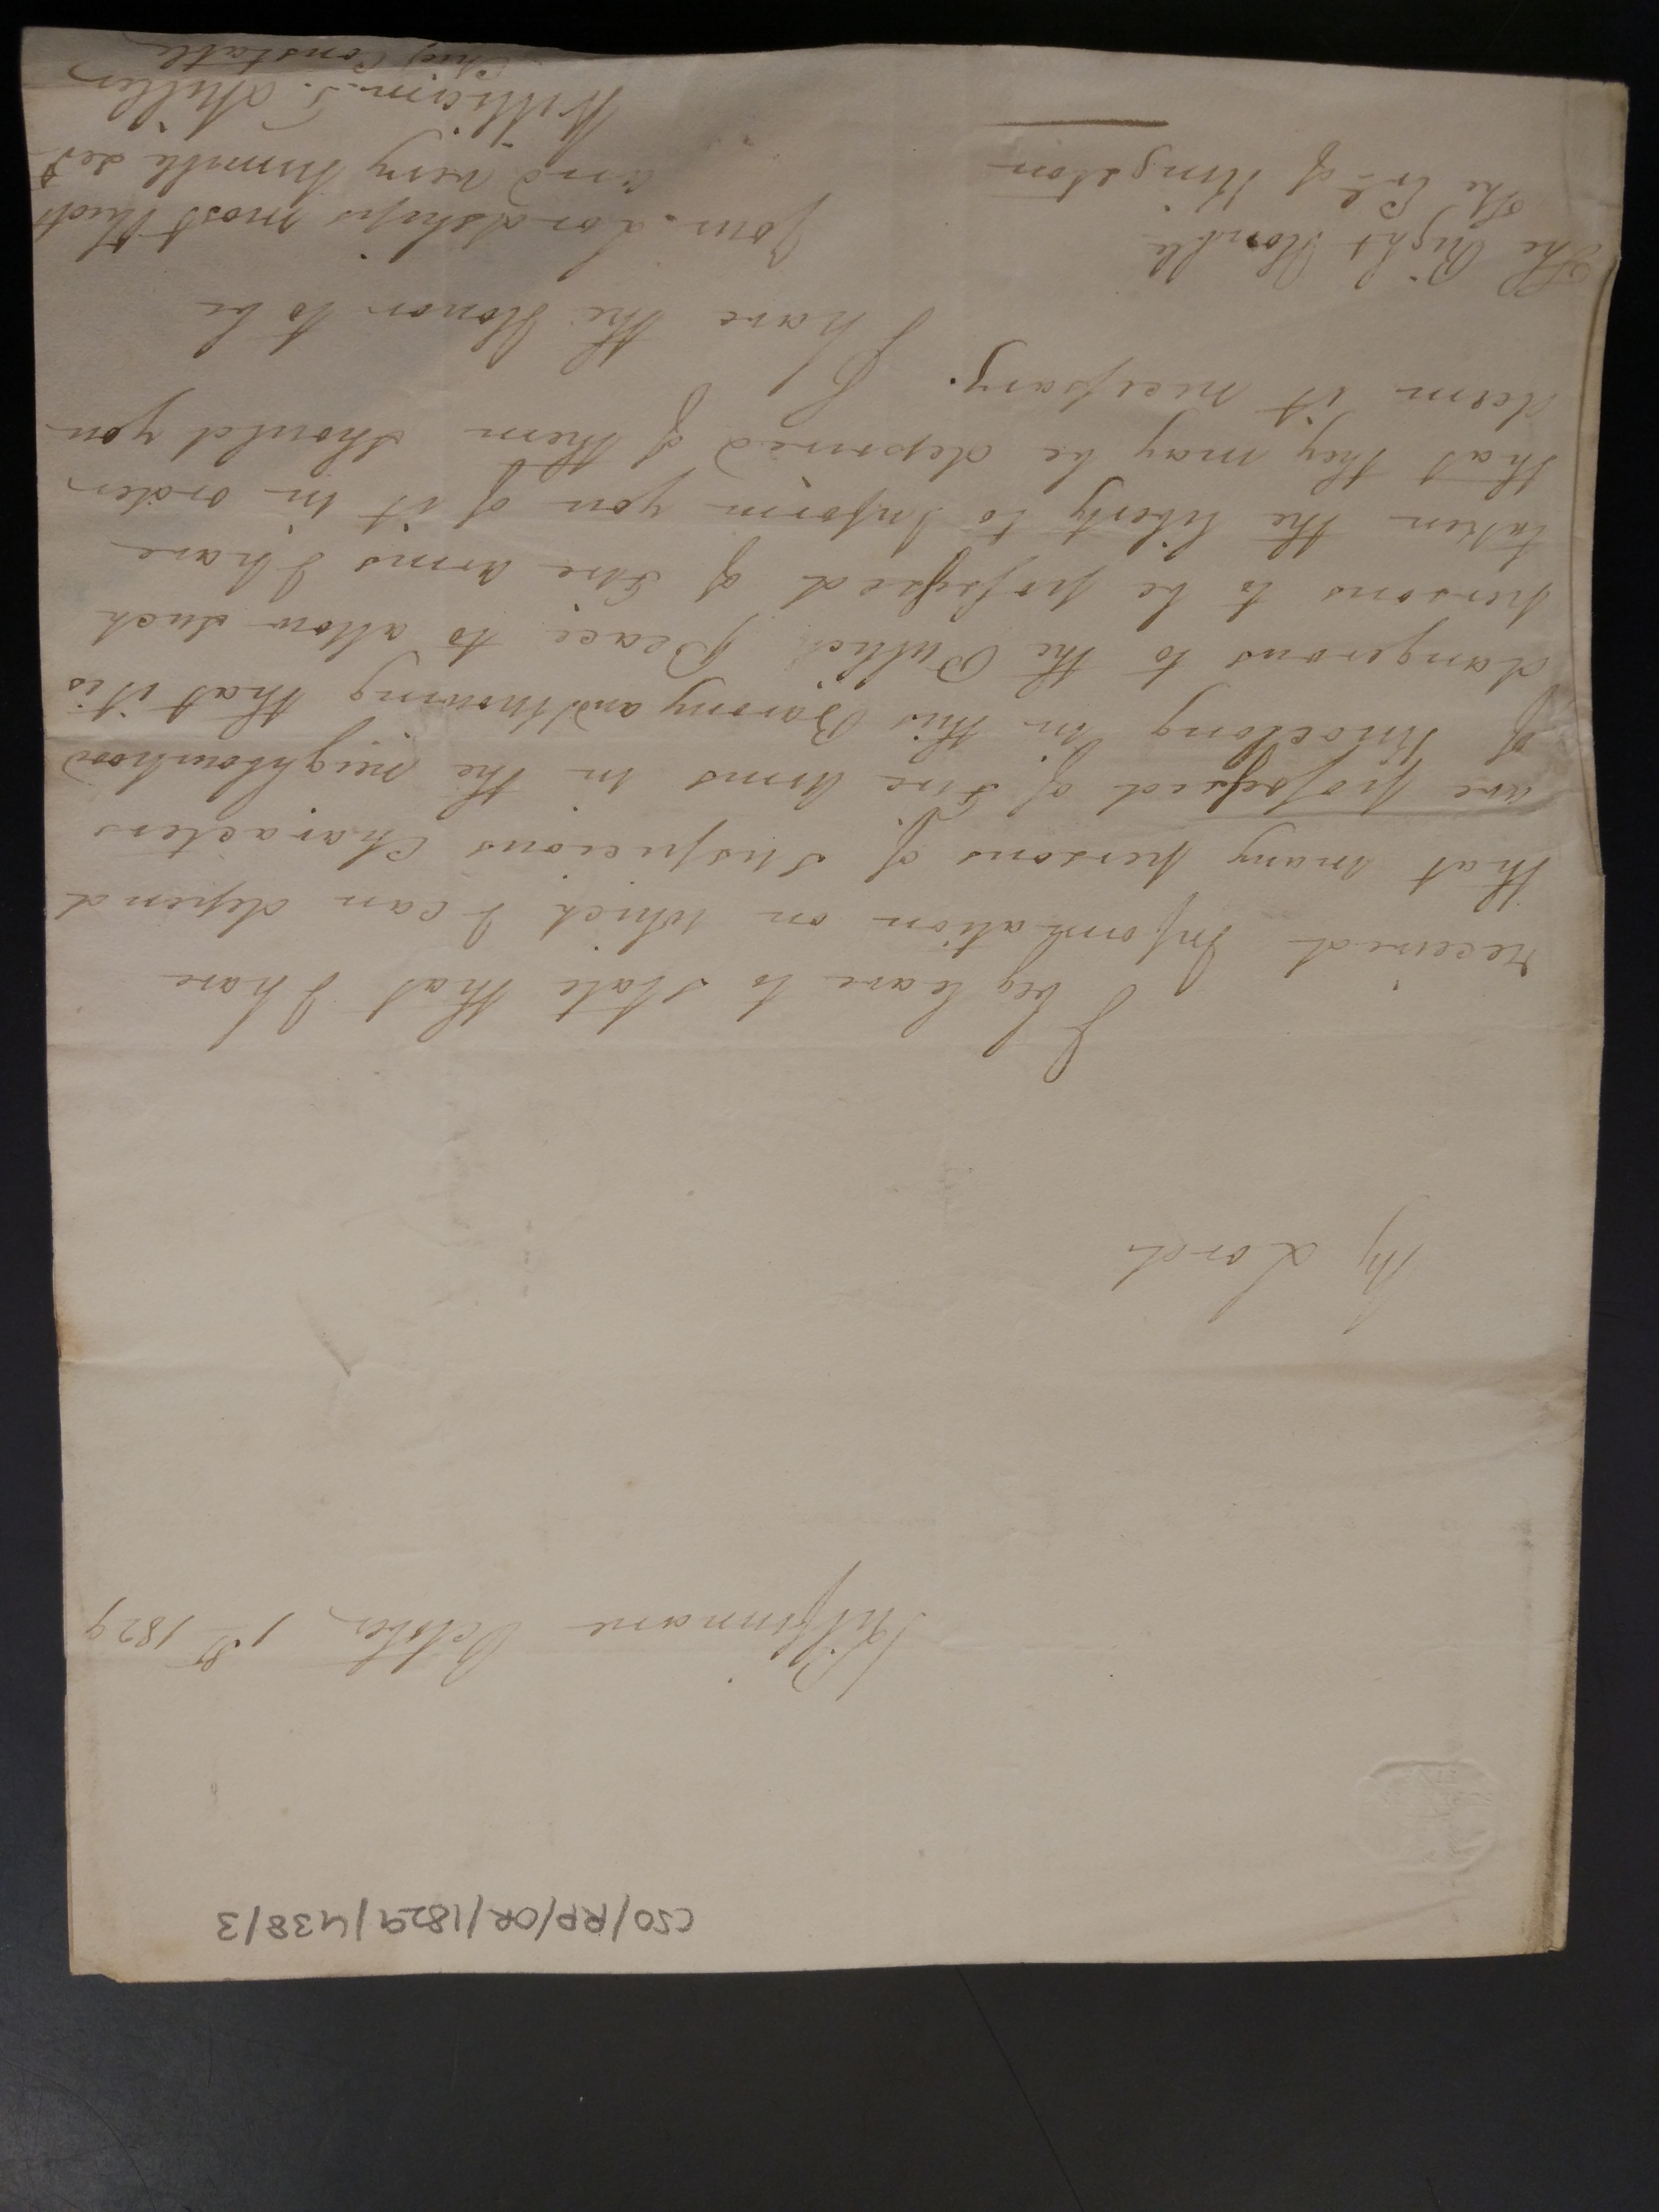 CSO/RP/OR/1829/438/3
Kilfinnane October 1st 1829
My Lord
I beg leave to state that I have
received Information on which I can depend
that many persons of Suspicious Characters
are possessed of Fire Arms in the neighbourhood
of Knoclong in this Barony and knowing that it is
dangerous to the Publick Peace to allow such
persons to be possessed of Fire Arms I have
taken the liberty to Inform you of it in order
that they may be deprived of them should you
deem it necessary.
I have the Honor to be
Your Lordships most
and very humble
William Miller
Chief Constable
The Right Honble
The Erl of Kingston